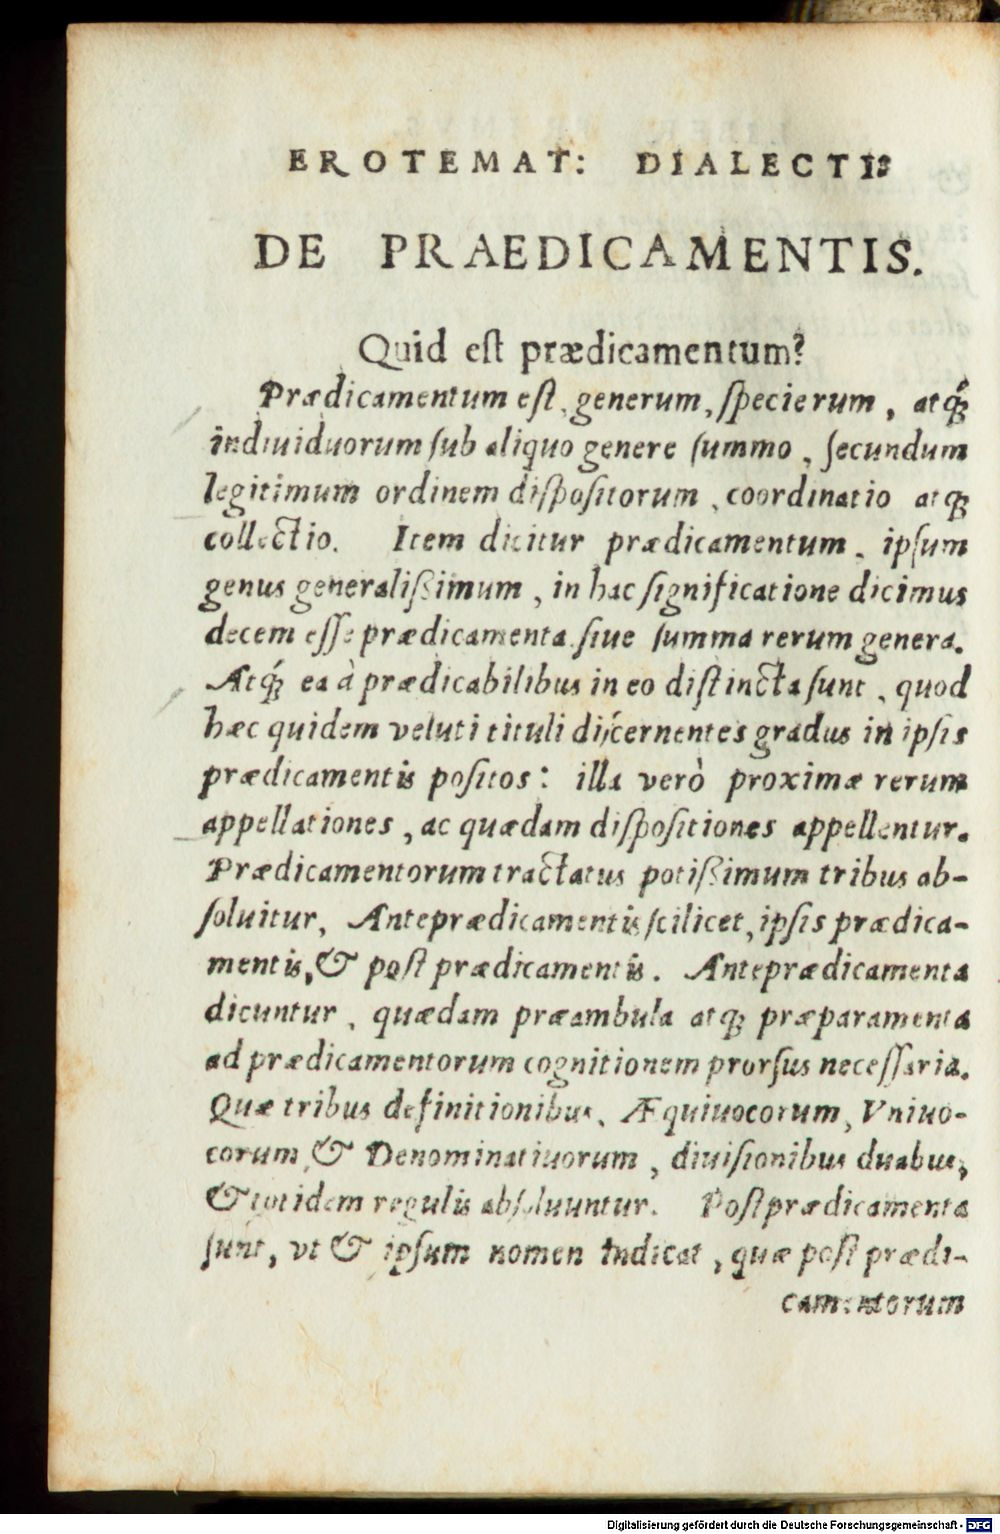 EROTEMAT: DIALECTI:
DE PRAEDICAMENTIS.
Quid eſt prædicamentum?
Prædicamentum eſt, generum, ſpecierum, atq́;
indiuiduorum ſub aliquo genere ſummo, ſecundum
legitimum ordinem diſpoſitorum, coordinatio atq;
collectio. Item dicitur prædicamentum, ipſum
genus generaliſsimum, in hac ſignificatione dicimus
decem eſſe prædicamenta ſiue ſumma rerum genera.
Atq́; ea à prædicabilibus in eo diſtincta ſunt, quod
hæc quidem veluti tituli diſcernentes gradus in ipſis
prædicamentis poſitos: illa verò proximæ rerum
appellationes, ac quædam diſpoſitiones appellentur.
Prædicamentorum tractatus potiſsimum tribus ab-
ſoluitur, Anteprædicamentis ſcilicet, ipſis prædica-
mentis, & poſt prædicamentis. Anteprædicamenta
dicuntur, quædam præambula atq; præparamenta
ad prædicamentorum cognitionem prorſus neceſſaria.
Quæ tribus definitionibus, Æquiuocorum, Vniuo-
corum, & Denominatiuorum, diuiſionibus duabus,
& totidem regulis abſoluuntur. Poſtprædicamenta
ſunt, vt & ipſum nomen indicat, quæ poſt prædi-
camentorum
Digitalisierung gefördert durch die Deutsche Forschungsgemeinschaft - DFG